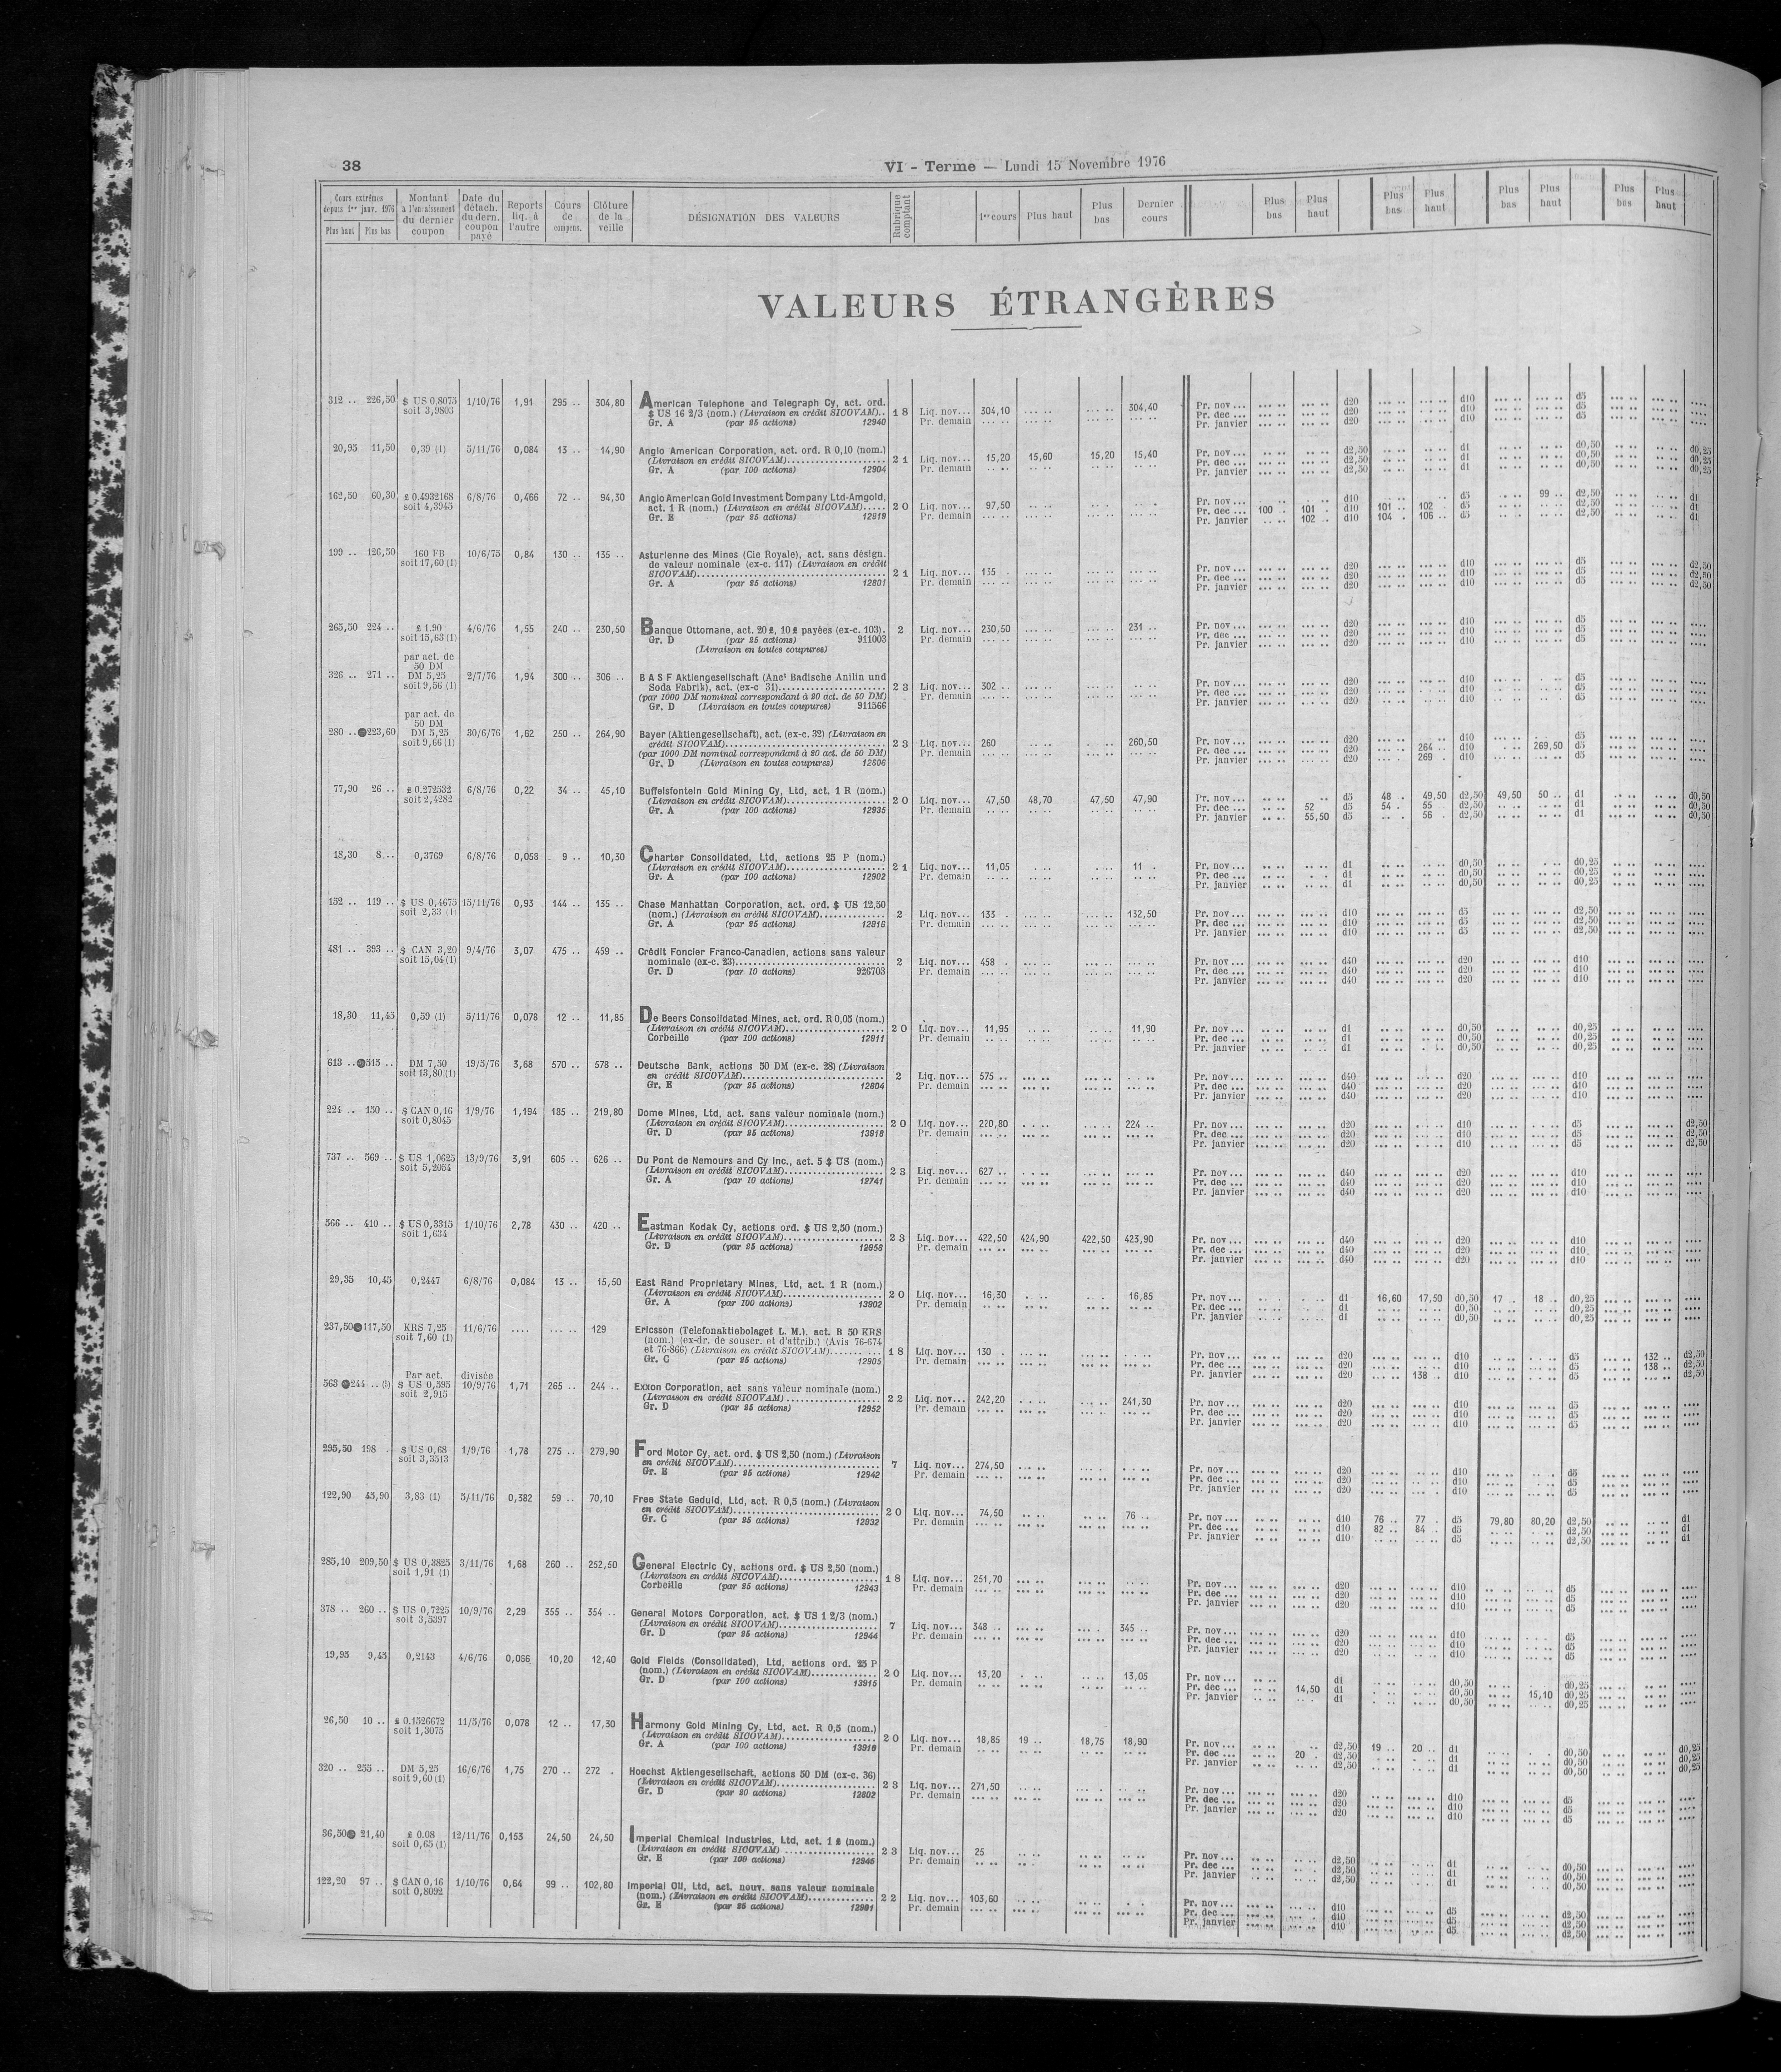 38
VI - Terme — Lundi 15 Novembre 1976
Cours extrêmes depuis 1er janv. 1976 Plus haut Plus bas | Montant à l'encaissement du dernier coupon | Date du détach. du dern. coupon payé | Reports liq. à l'autre | Cours de compens. | Clôture de la veille | DÉSIGNATION DES VALEURS | Rubrique comptant | 1er cours | Plus haut | Plus bas | Dernier cours | Plus bas | Plus haut | Plus bas | Plus haut | Plus bas | Plus haut | Plus bas | Plus haut
VALEURS ÉTRANGÈRES
312 .. 226,50 $ US 0,8075 1/10/76 1,91 295 .. 304,80 American Telephone and Telegraph Cy, act. ord.
soit 3,9803 $ US 16 2/3 (nom.) (Livraison en crédit SICOVAM).. 18 Liq. nov... 304,10 304,40 Pr. nov... d20 d10 d5
Gr. A (par 25 actions) 12940 Pr. demain Pr. dec ... d20 d10 d5
Pr. janvier d20 d10 d5
20,95 11,50 0,39 (1) 5/11/76 0,084 13 .. 14,90 Anglo American Corporation, act. ord. R 0,10 (nom.)
(Livraison en crédit SICOVAM) 21 Liq. nov... 15,20 15,60 15,20 15,40 Pr. nov... d2,50 d1 d0,50 d0,25
Gr. A (par 100 actions) 12904 Pr. demain Pr. dec ... d2,50 d1 d0,50 d0,25
Pr. janvier d2,50 d1 d0,50 d0,25
162,50 60,30 £ 0.4932168 6/8/76 0,466 72 .. 94,30 Anglo American Gold Investment Company Ltd-Amgold,
soit 4,3945 act. 1 R (nom.) (Livraison en crédit SICOVAM)..... 20 Liq. nov... 97,50 Pr. nov... d10 d5 99 .. d2,50 d1
Gr. E (par 25 actions) 12919 Pr. demain Pr. dec ... 100 . 101 . d10 101 .. 102 . d5 d2,50
Pr. janvier 102 .. d10 104 . 106 .. d5 d2,50 d1
199 .. 126,50 160 FB 10/6/75 0,84 130 .. 135 .. Asturienne des Mines (Cie Royale), act. sans désign.
soit 17,60 (1) de valeur nominale (ex-c. 117) (Livraison en crédit
SICOVAM) 21 Liq. nov... 135 . Pr. nov... d20 d10 d5 d2,50
Gr. A (par 25 actions) 12801 Pr. demain Pr. dec ... d20 d10 d5 d2,50
Pr. janvier d20 d10 d5 d2,50
265,50 224 .. £ 1.90 4/6/76 1,55 240 .. 230,50 Banque Ottomane, act. 20 £, 10 £ payées (ex-c. 103). 2 Liq. nov... 230,50 231 .. Pr. nov... d20 d10 d5
soit 15,63 (1) Gr. D (par 25 actions) 911003 Pr. demain Pr. dec ... d20 d10 d5
(Livraison en toutes coupures) Pr. janvier d20 d10 d5
par act. de
50 DM
326 .. 271 .. DM 5,25 2/7/76 1,94 300 .. 306 .. B A S F Aktiengesellschaft (Anct Badische Anilin und
soit 9,56 (1) Soda Fabrik), act. (ex-c 31) 23 Liq. nov... 302 .. Pr. nov... d20 d10 d5
(par 1000 DM nominal correspondant à 20 act. de 50 DM) Pr. demain Pr. dec ... d20 d10 d5
Gr. D (Livraison en toutes coupures) 911566 Pr. janvier d20 d10 d5
par act. de
50 DM
280 .. ●223,60 DM 5,25 30/6/76 1,62 250 .. 264,90 Bayer (Aktiengesellschaft), act. (ex-c. 32) (Livraison en
soit 9,66 (1) crédit SICOVAM) 23 Liq. nov... 260 260,50 Pr. nov... d20 d10 d5
(par 1000 DM nominal correspondant à 20 act. de 50 DM) Pr. demain Pr. dec ... d20 264 .. d10 269,50 d5
Gr. D (Livraison en toutes coupures) 12806 Pr. janvier d20 269 . d10 d5
77,90 26 .. £ 0.272532 6/8/76 0,22 34 .. 45,10 Buffelsfontein Gold Mining Cy, Ltd, act. 1 R (nom.)
soit 2,4282 (Livraison en crédit SICOVAM) 20 Liq. nov... 47,50 48,70 47,50 47,90 Pr. nov... d5 48 . 49,50 d2,50 49,50 50 .. d1 d0,50
Gr. A (par 100 actions) 12935 Pr. demain Pr. dec ... 52 d5 54 . 55 d2,50 d1 d0,50
Pr. janvier 55,50 d5 56 . d2,50 d1 d0,50
18,30 8 .. 0,3769 6/8/76 0,058 9 .. 10,30 Charter Consolidated, Ltd, actions 25 P (nom.)
(Livraison en crédit SICOVAM) 21 Liq. nov... 11,05 11 . Pr. nov... d1 d0,50 d0,25
Gr. A (par 100 actions) 12902 Pr. demain Pr. dec ... d1 d0,50 d0,25
Pr. janvier d1 d0,50 d0,25
152 .. 119 .. $ US 0,4675 15/11/76 0,93 144 .. 135 .. Chase Manhattan Corporation, act. ord. $ US 12,50
soit 2,33 (1) (nom.) (Livraison en crédit SICOVAM) 2 Liq. nov... 133 . 132,50 Pr. nov... d10 d5 d2,50
Gr. A (par 25 actions) 12916 Pr. demain Pr. dec ... d10 d5 d2,50
Pr. janvier d10 d5 d2,50
481 .. 393 .. $ CAN 3,20 9/4/76 3,07 475 .. 459 .. Crédit Foncier Franco-Canadien, actions sans valeur
soit 15,04 (1) nominale (ex-c. 23) 2 Liq. nov... 458 . Pr. nov... d40 d20 d10
Gr. D (par 10 actions) 926703 Pr. demain Pr. dec ... d40 d20 d10
Pr. janvier d40 d20 d10
18,30 11,45 0,59 (1) 5/11/76 0,078 12 .. 11,85 De Beers Consolidated Mines, act. ord. R 0,05 (nom.)
(Livraison en crédit SICOVAM) 20 Liq. nov... 11,95 11,90 Pr. nov... d1 d0,50 d0,25
Corbeille (par 100 actions) 12911 Pr. demain Pr. dec ... d1 d0,50 d0,25
Pr. janvier d1 d0,50 d0,25
613 .. ●515 .. DM 7,50 19/5/76 3,68 570 .. 578 .. Deutsche Bank, actions 50 DM (ex-c. 28) (Livraison
soit 13,80 (1) en crédit SICOVAM) 2 Liq. nov... 575 .. Pr. nov... d40 d20 d10
Gr. E (par 25 actions) 12804 Pr. demain Pr. dec ... d40 d20 d10
Pr. janvier d40 d20 d10
224 .. 150 .. $ CAN 0,16 1/9/76 1,194 185 .. 219,80 Dome Mines, Ltd, act. sans valeur nominale (nom.)
soit 0,8045 (Livraison en crédit SICOVAM) 20 Liq. nov... 220,80 224 .. Pr. nov... d20 d10 d5 d2,50
Gr. D (par 25 actions) 13918 Pr. demain Pr. dec ... d20 d10 d5 d2,50
Pr. janvier d20 d10 d5 d2,50
737 .. 569 .. $ US 1,0625 13/9/76 3,91 605 .. 626 .. Du Pont de Nemours and Cy Inc., act. 5 $ US (nom.)
soit 5,2054 (Livraison en crédit SICOVAM) 23 Liq. nov... 627 .. Pr. nov... d40 d20 d10
Gr. A (par 10 actions) 12741 Pr. demain Pr. dec ... d40 d20 d10
Pr. janvier d40 d20 d10
566 .. 410 .. $ US 0,3315 1/10/76 2,78 430 .. 420 .. Eastman Kodak Cy, actions ord. $ US 2,50 (nom.)
soit 1,634 (Livraison en crédit SICOVAM) 23 Liq. nov... 422,50 424,90 422,50 423,90 Pr. nov... d40 d20 d10
Gr. D (par 25 actions) 12958 Pr. demain Pr. dec ... d40 d20 d10
Pr. janvier d40 d20 d10
29,35 10,45 0,2447 6/8/76 0,084 13 .. 15,50 East Rand Proprietary Mines, Ltd, act. 1 R (nom.)
(Livraison en crédit SICOVAM) 20 Liq. nov... 16,30 16,85 Pr. nov... d1 16,60 17,50 d0,50 17 .. 18 .. d0,25
Gr. A (par 100 actions) 13902 Pr. demain Pr. dec ... d1 d0,50 d0,25
Pr. janvier d1 d0,50 d0,25
237,50 ●117,50 KRS 7,25 11/6/76 .... ... .. 129 Ericsson (Telefonaktiebolaget L. M.), act. B 50 KRS
soit 7,60 (1) (nom.) (ex-dr. de souscr. et d'attrib.) (Avis 76-674
et 76-866) (Livraison en crédit SICOVAM) 18 Liq. nov... 130 . Pr. nov... d20 d10 d5 132 .. d2,50
Gr. C (par 25 actions) 12905 Pr. demain Pr. dec ... d20 d10 d5 138 .. d2,50
Pr. janvier d20 138 .. d10 d5 d2,50
Par act. divisée
563 ●244 .. (3) $ US 0,595 10/9/76 1,71 265 .. 244 .. Exxon Corporation, act sans valeur nominale (nom.)
soit 2,915 (Livraison en crédit SICOVAM) 22 Liq. nov... 242,20 241,30 Pr. nov... d20 d10 d5
Gr. D (par 25 actions) 12952 Pr. demain Pr. dec ... d20 d10 d5
Pr. janvier d20 d10 d5
295,50 198 . $ US 0,68 1/9/76 1,78 275 .. 279,90 Ford Motor Cy, act. ord. $ US 2,50 (nom.) (Livraison
soit 3,3513 en crédit SICOVAM) 7 Liq. nov... 274,50 Pr. nov... d20 d10 d5
Gr. E (par 25 actions) 12942 Pr. demain Pr. dec ... d20 d10 d5
Pr. janvier d20 d10 d5
122,90 45,90 3,83 (1) 5/11/76 0,382 59 .. 70,10 Free State Geduld, Ltd, act. R 0,5 (nom.) (Livraison
en crédit SICOVAM) 20 Liq. nov... 74,50 76 .. Pr. nov... d10 76 .. 77 . d5 79,80 80,20 d2,50 d1
Gr. C (par 25 actions) 12932 Pr. demain Pr. dec ... d10 82 .. 84 .. d5 d2,50 d1
Pr. janvier d10 d5 d2,50 d1
285,10 209,50 $ US 0,3825 3/11/76 1,68 260 .. 252,50 General Electric Cy, actions ord. $ US 2,50 (nom.)
soit 1,91 (1) (Livraison en crédit SICOVAM) 18 Liq. nov... 251,70 Pr. nov... d20 d10 d5
Corbeille (par 25 actions) 12943 Pr. demain Pr. dec ... d20 d10 d5
Pr. janvier d20 d10 d5
378 .. 260 .. $ US 0,7225 10/9/76 2,29 355 .. 354 .. General Motors Corporation, act. $ US 1 2/3 (nom.)
soit 3,5397 (Livraison en crédit SICOVAM) 7 Liq. nov... 348 . 345 .. Pr. nov... d20 d10 d5
Gr. D (par 25 actions) 12944 Pr. demain Pr. dec ... d20 d10 d5
Pr. janvier d20 d10 d5
19,95 9,45 0,2143 4/6/76 0,056 10,20 12,40 Gold Fields (Consolidated), Ltd, actions ord. 25 P
(nom.) (Livraison en crédit SICOVAM) 20 Liq. nov... 13,20 13,05 Pr. nov... d1 d0,50 d0,25
Gr. D (par 100 actions) 13915 Pr. demain Pr. dec ... 14,50 d1 d0,50 15,10 d0,25
Pr. janvier d1 d0,50 d0,25
26,50 10 .. £ 0.1526672 11/5/76 0,078 12 .. 17,30 Harmony Gold Mining Cy, Ltd, act. R 0,5 (nom.)
soit 1,3075 (Livraison en crédit SICOVAM) 20 Liq. nov... 18,85 19 .. 18,75 18,90 Pr. nov... d2,50 19 .. 20 .. d1 d0,50 d0,25
Gr. A (par 100 actions) 13910 Pr. demain Pr. dec ... 20 . d2,50 d1 d0,50 d0,25
Pr. janvier d2,50 d1 d0,50 d0,25
320 .. 255 .. DM 5,25 16/6/76 1,75 270 .. 272 . Hoechst Aktiengesellschaft, actions 50 DM (ex-c. 36)
soit 9,60 (1) (Livraison en crédit SICOVAM) 23 Liq. nov... 271,50 Pr. nov... d20 d10 d5
Gr. D (par 20 actions) 12802 Pr. demain Pr. dec ... d20 d10 d5
Pr. janvier d20 d10 d5
36,50● 21,40 £ 0.08 12/11/76 0,153 24,50 24,50 Imperial Chemical Industries, Ltd, act. 1 £ (nom.)
soit 0,65 (1) (Livraison en crédit SICOVAM) 23 Liq. nov... 25 Pr. nov... d2,50 d1 d0,50
Gr. E (par 100 actions) 12945 Pr. demain Pr. dec ... d2,50 d1 d0,50
Pr. janvier d2,50 d1 d0,50
122,20 97 .. $ CAN 0,16 1/10/76 0,64 99 .. 102,80 Imperial Oil, Ltd, act. nouv. sans valeur nominale
soit 0,8092 (nom.) (Livraison en crédit SICOVAM) 22 Liq. nov... 103,60 Pr. nov... d10 d5 d2,50
Gr. E (par 25 actions) 12991 Pr. demain Pr. dec ... d10 d5 d2,50
Pr. janvier d10 d5 d2,50